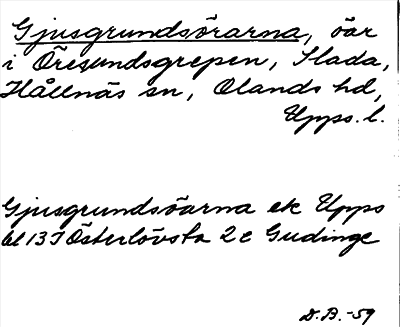 Gjusgrundsörarna, öar
i Öresundsgrepen, Slada,
Hållnäs sn, Olands hd,
Upps. l.
Gjusgrundsöarna ek Upps
bl 13 I Österlövsta 2 e Gudinge
D.B. -59